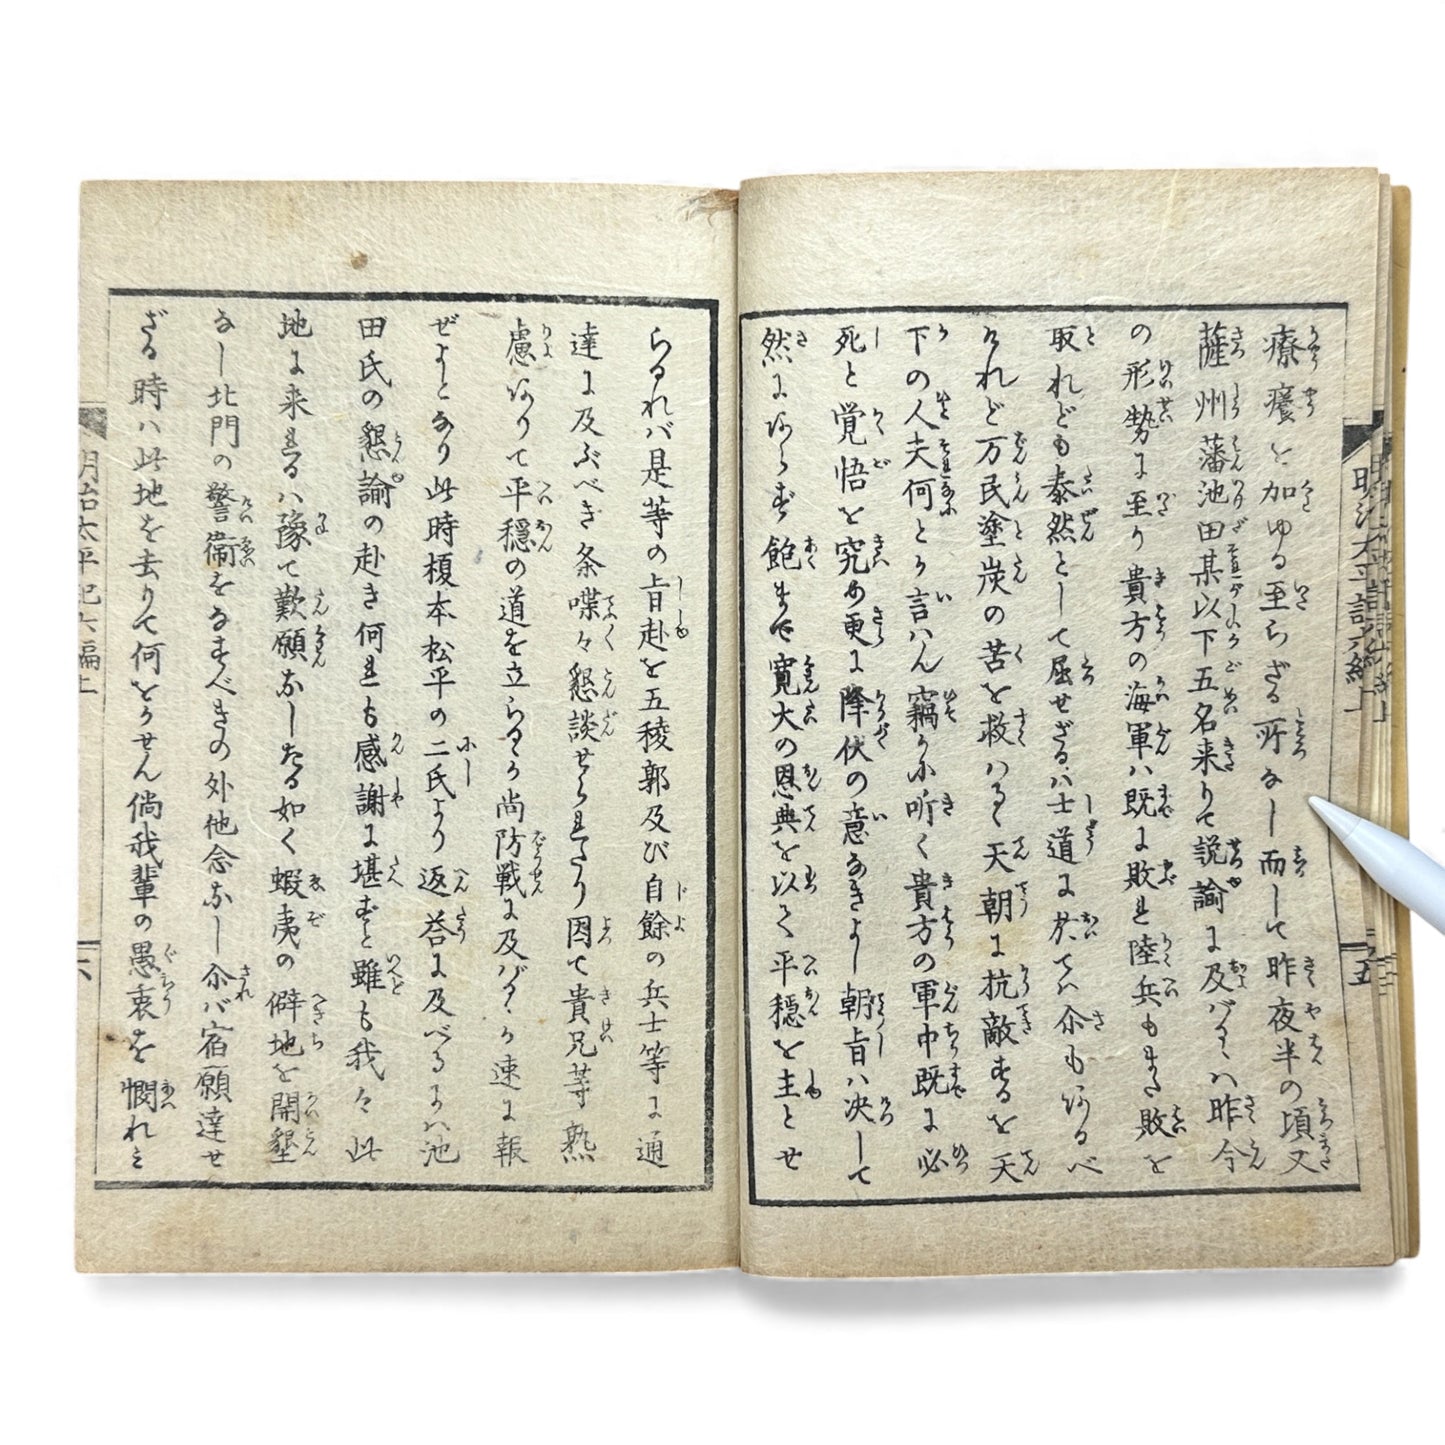 療養を加ゆる至らざる所なし而して昨夜半の頃又
薩州藩池田某以下五名来りて説諭に及バるゝハ昨今
の形勢に至り貴方の海軍ハ既に敗れ陸兵もまた敗を
取れども泰然として屈せざるハ士道に於てハ尓もあるべ
けれど万民塗炭の苦を救ハるゝ天朝に抗敵するを天
下の人夫何とか言ハん竊かに听く貴方の軍中既に必
死と覚悟を究め更に降伏の意なきよし朝旨ハ决して
然にあらず飽まで寛大の恩典を以て平穏を主とせ
らるれバ是等の旨赴を五稜郭及び自餘の兵士等に通
達に及ぶべき条喋々懇談せられたり因て貴兄等熟
慮ありて平穏の道を立らるゝか尚防戦に及バるゝか速に報
ぜよとなり此時榎本松平の二氏より返荅に及べるにハ池
田氏の懇諭の赴き何れも感謝に堪ずと雖も我々此
地に来れるハ豫て歎願なしたる如く蝦夷の僻地を開墾
なし北門の警衞をなすべきの外他念なし尓バ宿願達せ
ざる時ハ此地を去りて何をかせん倘我輩の愚衷を憫れミ
明治太平記六編上
六
明治太平記六編上
五